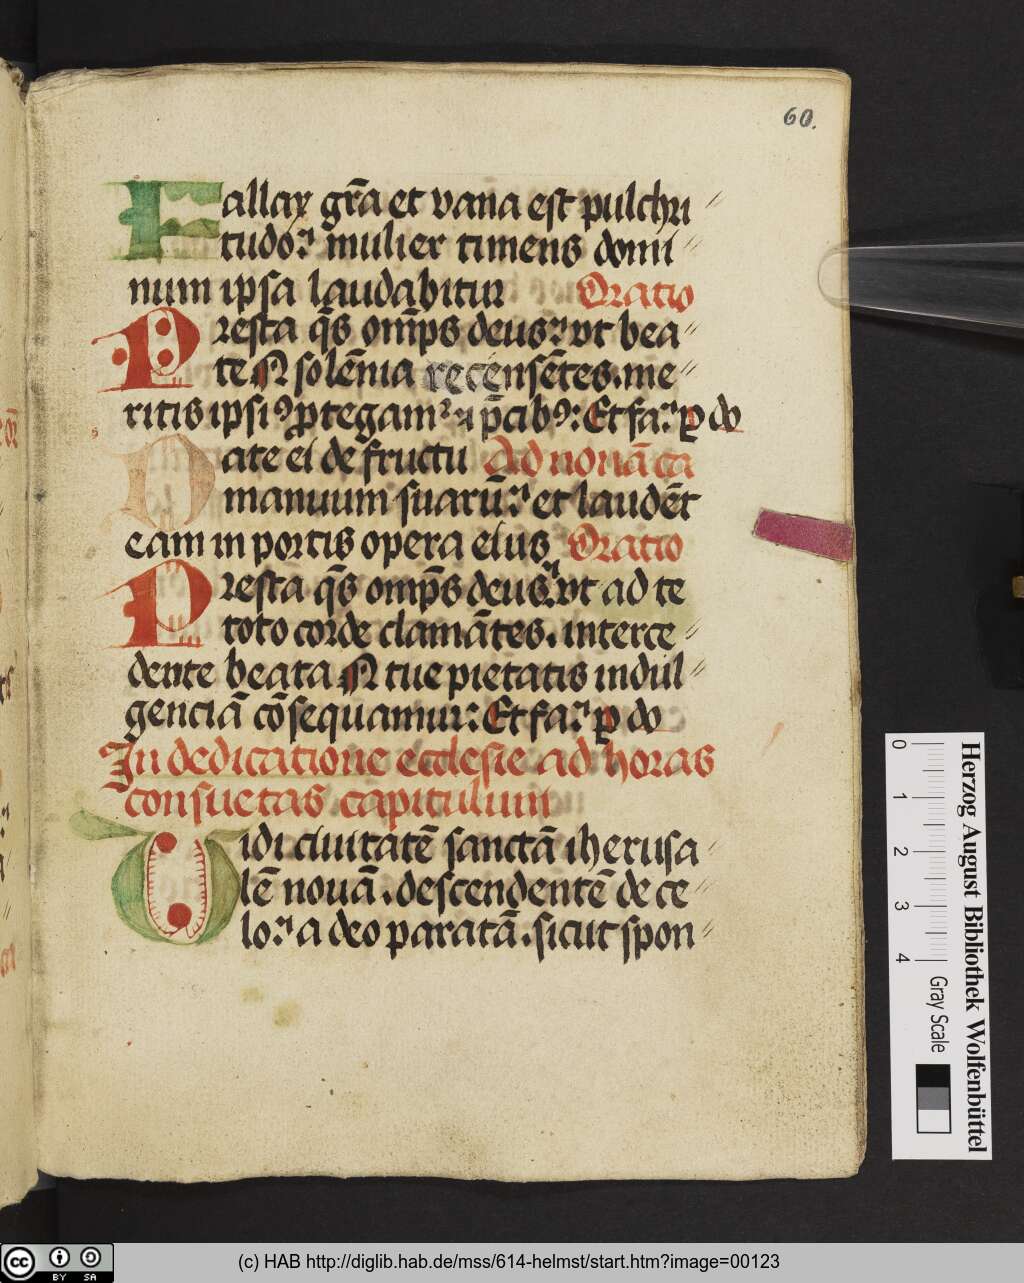 60.
Fallax gr̄a et vana est pulchri〃
tudo: mulier timens domi〃
num ipsa laudabitur Oratio
Presta q̄s om̄ps deus: vt bea〃
te N solēnia recensētes. me〃
ritis ipsiꝰ ꝓtegamᷣ ⁊ p̄cibꝰ: Et fa: ꝑ do
Date ei de fructu Ad nonā ca
manuum suarū: et laudēt
eam in portis opera eius Oratio
Presta q̄s om̄ps deus: vt ad te
toto corde clamātes. interce〃
dente beata N tue pietatis indul〃
genciā cōsequamur: Et fa: ꝑ do
In dedicatione ecclesie ad horas
consuetas capitulum
Uidi ciuitatē sanctā iherusa〃
lē nouā. descendentē de ce〃
lo: a deo paratā. sicut spon〃
Herzog August Bibliothek Wolfenbüttel
0 1 2 3 4 Gray Scale
cc BY SA
(c) HAB http://diglib.hab.de/mss/614-helmst/start.htm?image=00123